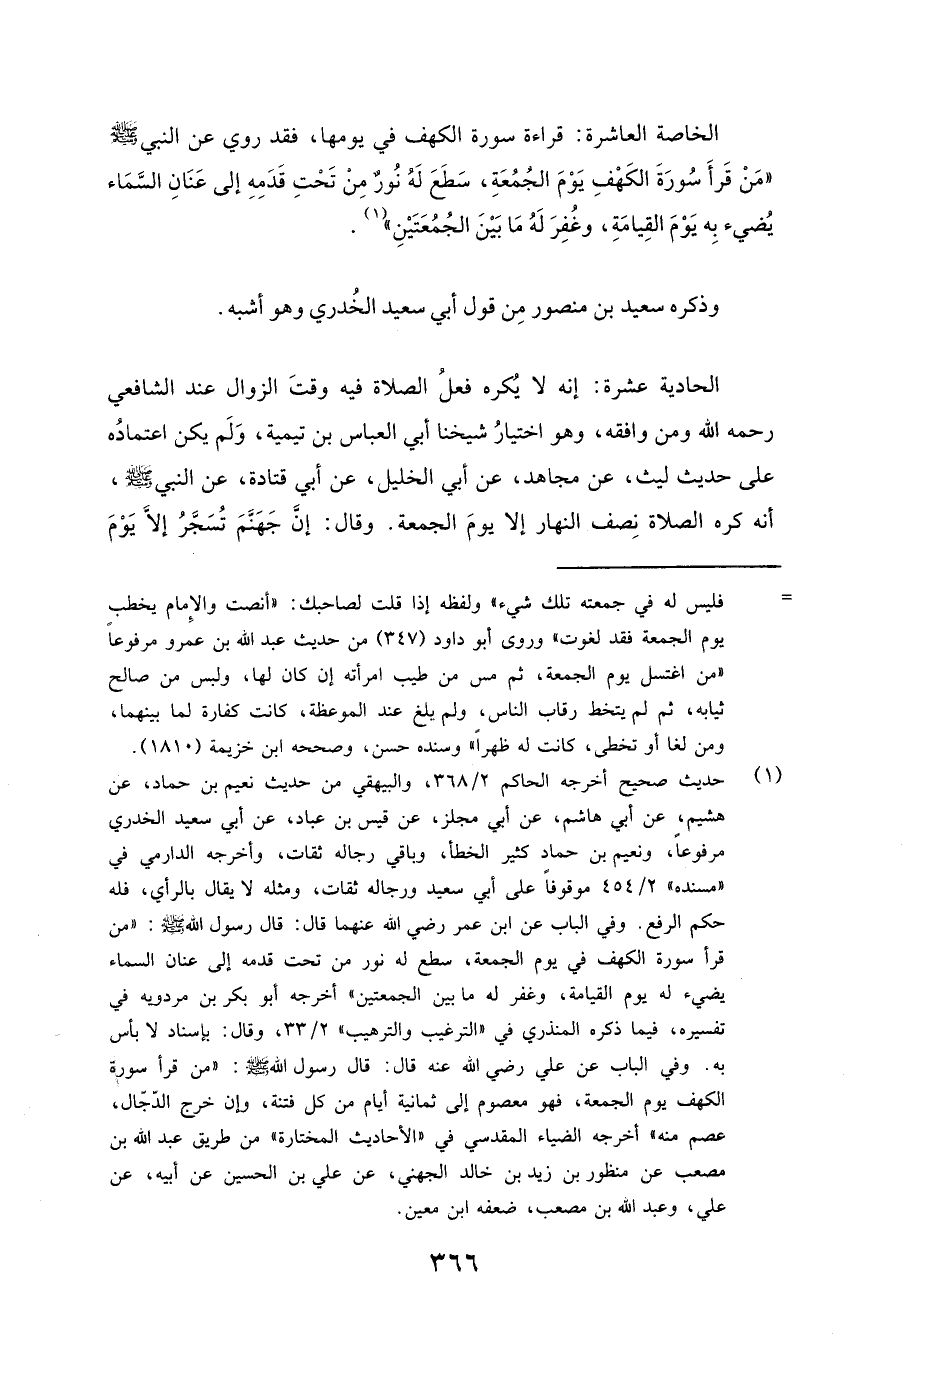 الخاصة العاشرة: قراءة سورة الكهف في يومها، فقد روي عن النبي ﷺ
«مَنْ قَرَأَ سُورَةَ الكَهْفِ يَوْمَ الجُمُعَةِ، سَطَعَ لَهُ نُورٌ مِنْ تَحْتِ قَدَمِهِ إلى عَنَانِ السَّمَاء
يُضيء بِه يَوْمَ القِيامَةِ، وغُفِرَ لَهُ مَا بَيْنَ الجُمُعَتَيْنِ»(١).
وذكره سعيد بن منصور مِن قول أبي سعيد الخُدري وهو أشبه.
الحادية عشرة: إنه لا يُكره فعلُ الصلاة فيه وقتَ الزوال عند الشافعي
رحمه الله ومن وافقه، وهو اختيارُ شيخنا أبي العباس بن تيمية، وَلَم يكن اعتمادُه
على حديث ليث، عن مجاهد، عن أبي الخليل، عن أبي قتادة، عن النبي ﷺ،
أنه كره الصلاة نِصف النهار إلا يومَ الجمعة. وقال: إنَّ جَهَنَّمَ تُسَجَّرُ إلاَّ يَوْمَ
= فليس له في جمعته تلك شيء» ولفظه إذا قلت لصاحبك: «أنصت والإمام يخطب
يوم الجمعة فقد لغوت» وروى أبو داود (٣٤٧) من حديث عبد الله بن عمرو مرفوعاً
«من اغتسل يوم الجمعة، ثم مس من طيب امرأته إن كان لها، ولبس من صالح
ثيابه، ثم لم يتخط رقاب الناس، ولم يلغ عند الموعظة، كانت كفارة لما بينهما،
ومن لغا أو تخطى، كانت له ظهراً» وسنده حسن، وصححه ابن خزيمة (١٨١٠).
(١) حديث صحيح أخرجه الحاكم ٣٦٨/٢، والبيهقي من حديث نعيم بن حماد، عن
هشيم، عن أبي هاشم، عن أبي مجلز، عن قيس بن عباد، عن أبي سعيد الخدري
مرفوعاً، ونعيم بن حماد كثير الخطأ، وباقي رجاله ثقات، وأخرجه الدارمي في
«مسنده» ٤٥٤/٢ موقوفاً على أبي سعيد ورجاله ثقات، ومثله لا يقال بالرأي، فله
حكم الرفع. وفي الباب عن ابن عمر رضي الله عنهما قال: قال رسول الله ﷺ: «من
قرأ سورة الكهف في يوم الجمعة، سطع له نور من تحت قدمه إلى عنان السماء
يضيء له يوم القيامة، وغفر له ما بين الجمعتين» أخرجه أبو بكر بن مردويه في
تفسيره، فيما ذكره المنذري في «الترغيب والترهيب» ٣٣/٢، وقال: بإسناد لا بأس
به. وفي الباب عن علي رضي الله عنه قال: قال رسول الله ﷺ: «من قرأ سورة
الكهف يوم الجمعة، فهو معصوم إلى ثمانية أيام من كل فتنة، وإن خرج الدّجّال،
عصم منه» أخرجه الضياء المقدسي في «الأحاديث المختارة» من طريق عبد الله بن
مصعب عن منظور بن زيد بن خالد الجهني، عن علي بن الحسين عن أبيه، عن
علي، وعبد الله بن مصعب، ضعفه ابن معين.
٣٦٦